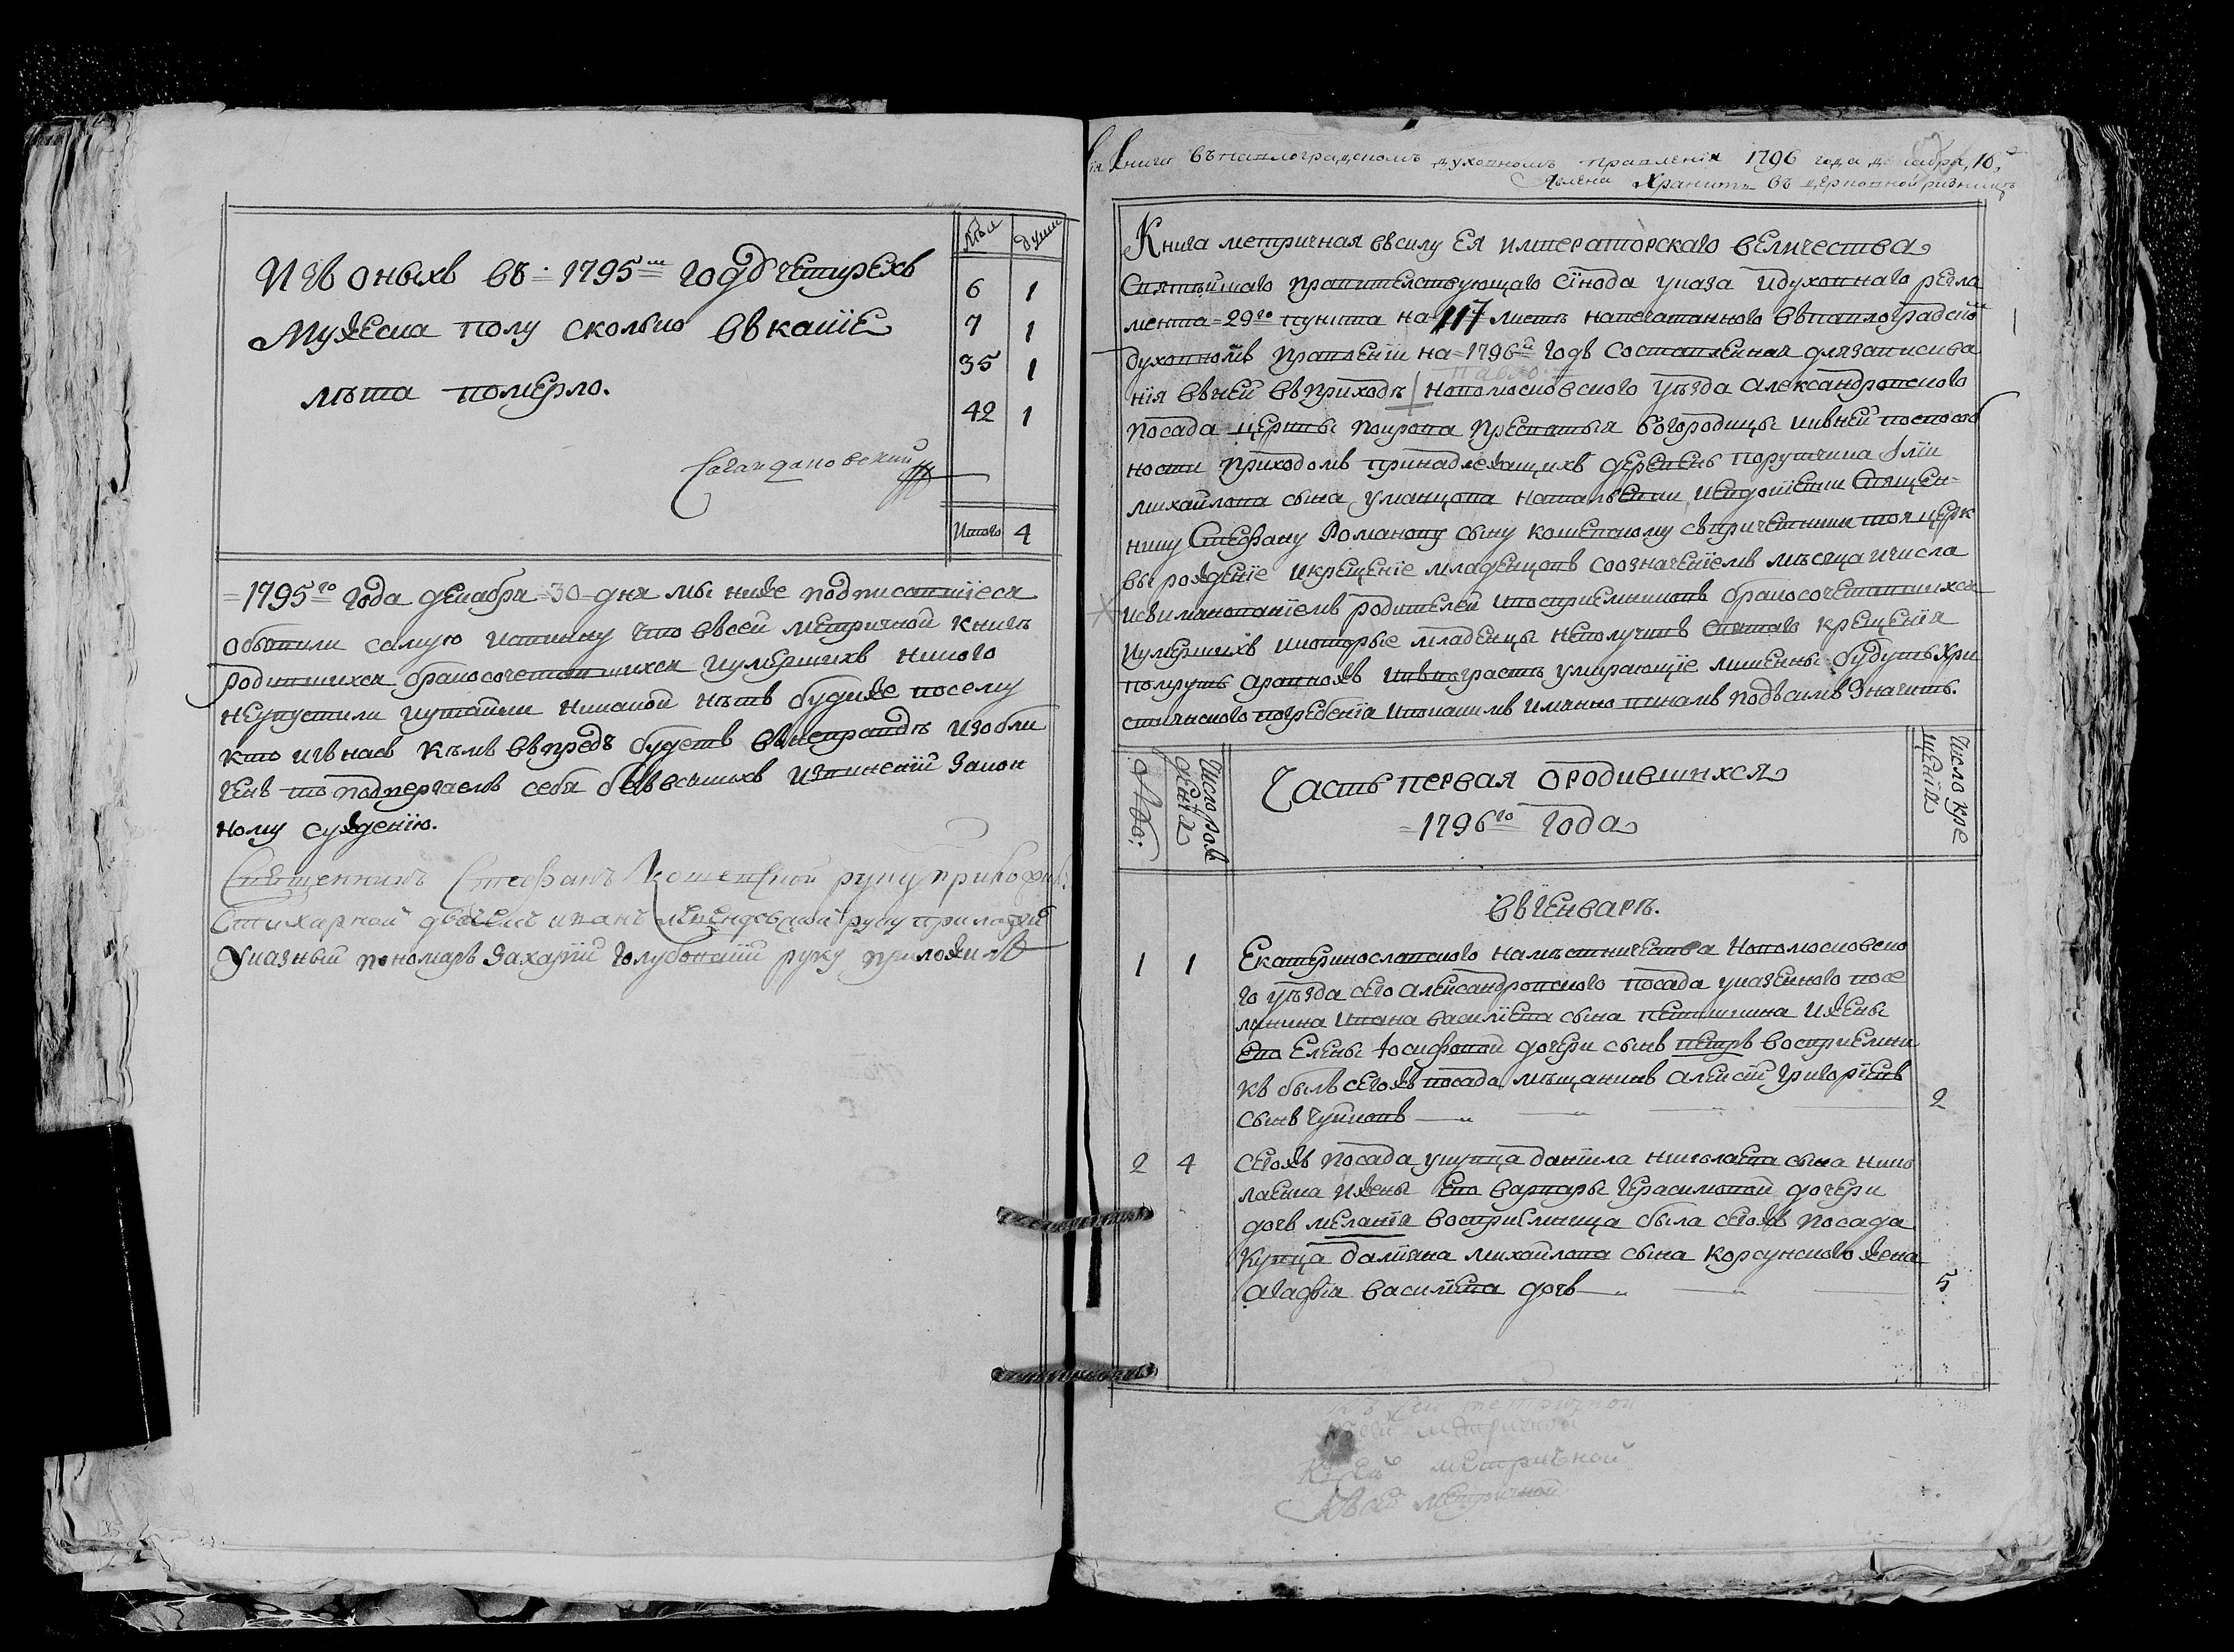 Лѣта
души
Изъ оныхъ въ 1795 м году четырехъ
Мужеска полу сколько въ какие
лѣта померло.
6 1
7 1
35 1
42 1
Итого 4
1795 го года декабря 30 дня мы ниже подписавшіеся
объявили самую истинну что въ сей метричной книгѣ
родившихся бракосочетавшихся и умершихъ никого
неупустили и утайки никакой нѣтъ буди же посему
кто изъ насъ кѣмъ впредъ будетъ въ неправдѣ изобли
ченъ то подвергаемъ себя безъ всякихъ извиненій закон
ному сужденію.
Священникъ Стефанъ Кошевской руку приложилъ
Стихарной дьячекъ Иванъ руку приложилъ
Указный пономарь Захарій Голубовскій руку приложилъ
Книга въ павлоградскомъ духовномъ правленіи 1796 года декабря, 10,
Явлена хранить въ церковной ризницѣ
Книга метричная въ силу Ея императорскаго величества
Святѣйшаго правительствующаго Сінода указа и духовнаго регла
мента 29 го пункта на 117 листѣ напечатанного въ павлоградско
духовномъ правленіи на 1796 й годъ составленная для записива
нія въ ней въ приходѣ новомосковского уѣзда Александровского
посада церквы покрова пресвятыя богородицы и къ ней по способ
ности приходомъ принадлежащихъ деревень порутчика Иліи
михайлова сына уманцова натальевки и евдокіевки Священ-
нику Стефану Романову сыну кошевскому съ причетники тоя церк
вы рождение и крещеніе младенцовъ со означеніемъ мѣсяца и числа
и съ имянованіемъ родителей и восприемниковъ бракосочетавшихся
и умершихъ и которые младенцы неполучивъ Святаго крещенія
помрутъ а равножъ и въ возрастѣ умирающіе лишены будутъ хри
стианского погребенія и по какимъ имянно винамъ подъ симъ значитъ.
число рож
денія
Часть первая о родившихся
1796 го года
число кре
щенія
въ Генварѣ.
1 1 Екатеринославского намѣстничества новомосковско
го уѣзда сего Александровского посада указенного посе
лянина Ивана василіева сына и жены
Его Елены Іосифовой дочери сынъ петръ восприемни
къ былъ сегожъ посада мѣщанинъ Алексій григоріевъ
сынъ Чуйковъ 2
2 4 Сегожъ посада купца даніила николаева сына нико
лаенка и жены Его варвары герасимовой дочери
дочь меланія восприемница была сегожъ посада
купца даміяна михайлова сына корсунского жена
Агафія василіева дочь 5
метричной
метричной
Къ сей метричной
Къ сей метричной